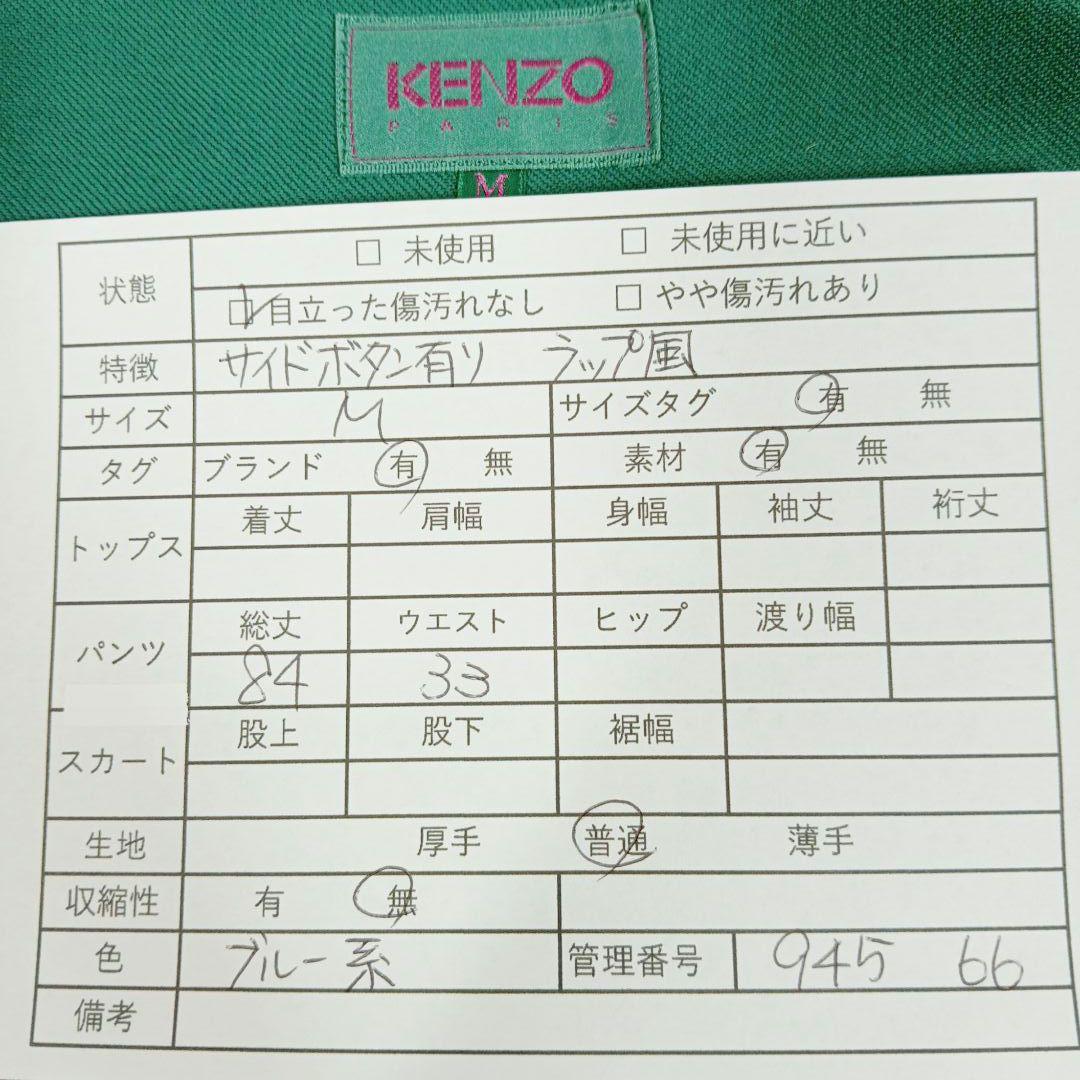 KENZO
PARIS
M
状態 □ 未使用 □ 未使用に近い
☑ 目立った傷汚れなし □ やや傷汚れあり
特徴 サイドボタン有り ラップ風
サイズ M サイズタグ 有 無
タグ ブランド 有 無 素材 有 無
トップス 着丈 肩幅 身幅 袖丈 裄丈
パンツ 総丈 ウエスト ヒップ 渡り幅
84 33
スカート 股上 股下 裾幅
生地 厚手 普通 薄手
収縮性 有 無
色 ブルー系 管理番号 945 66
備考